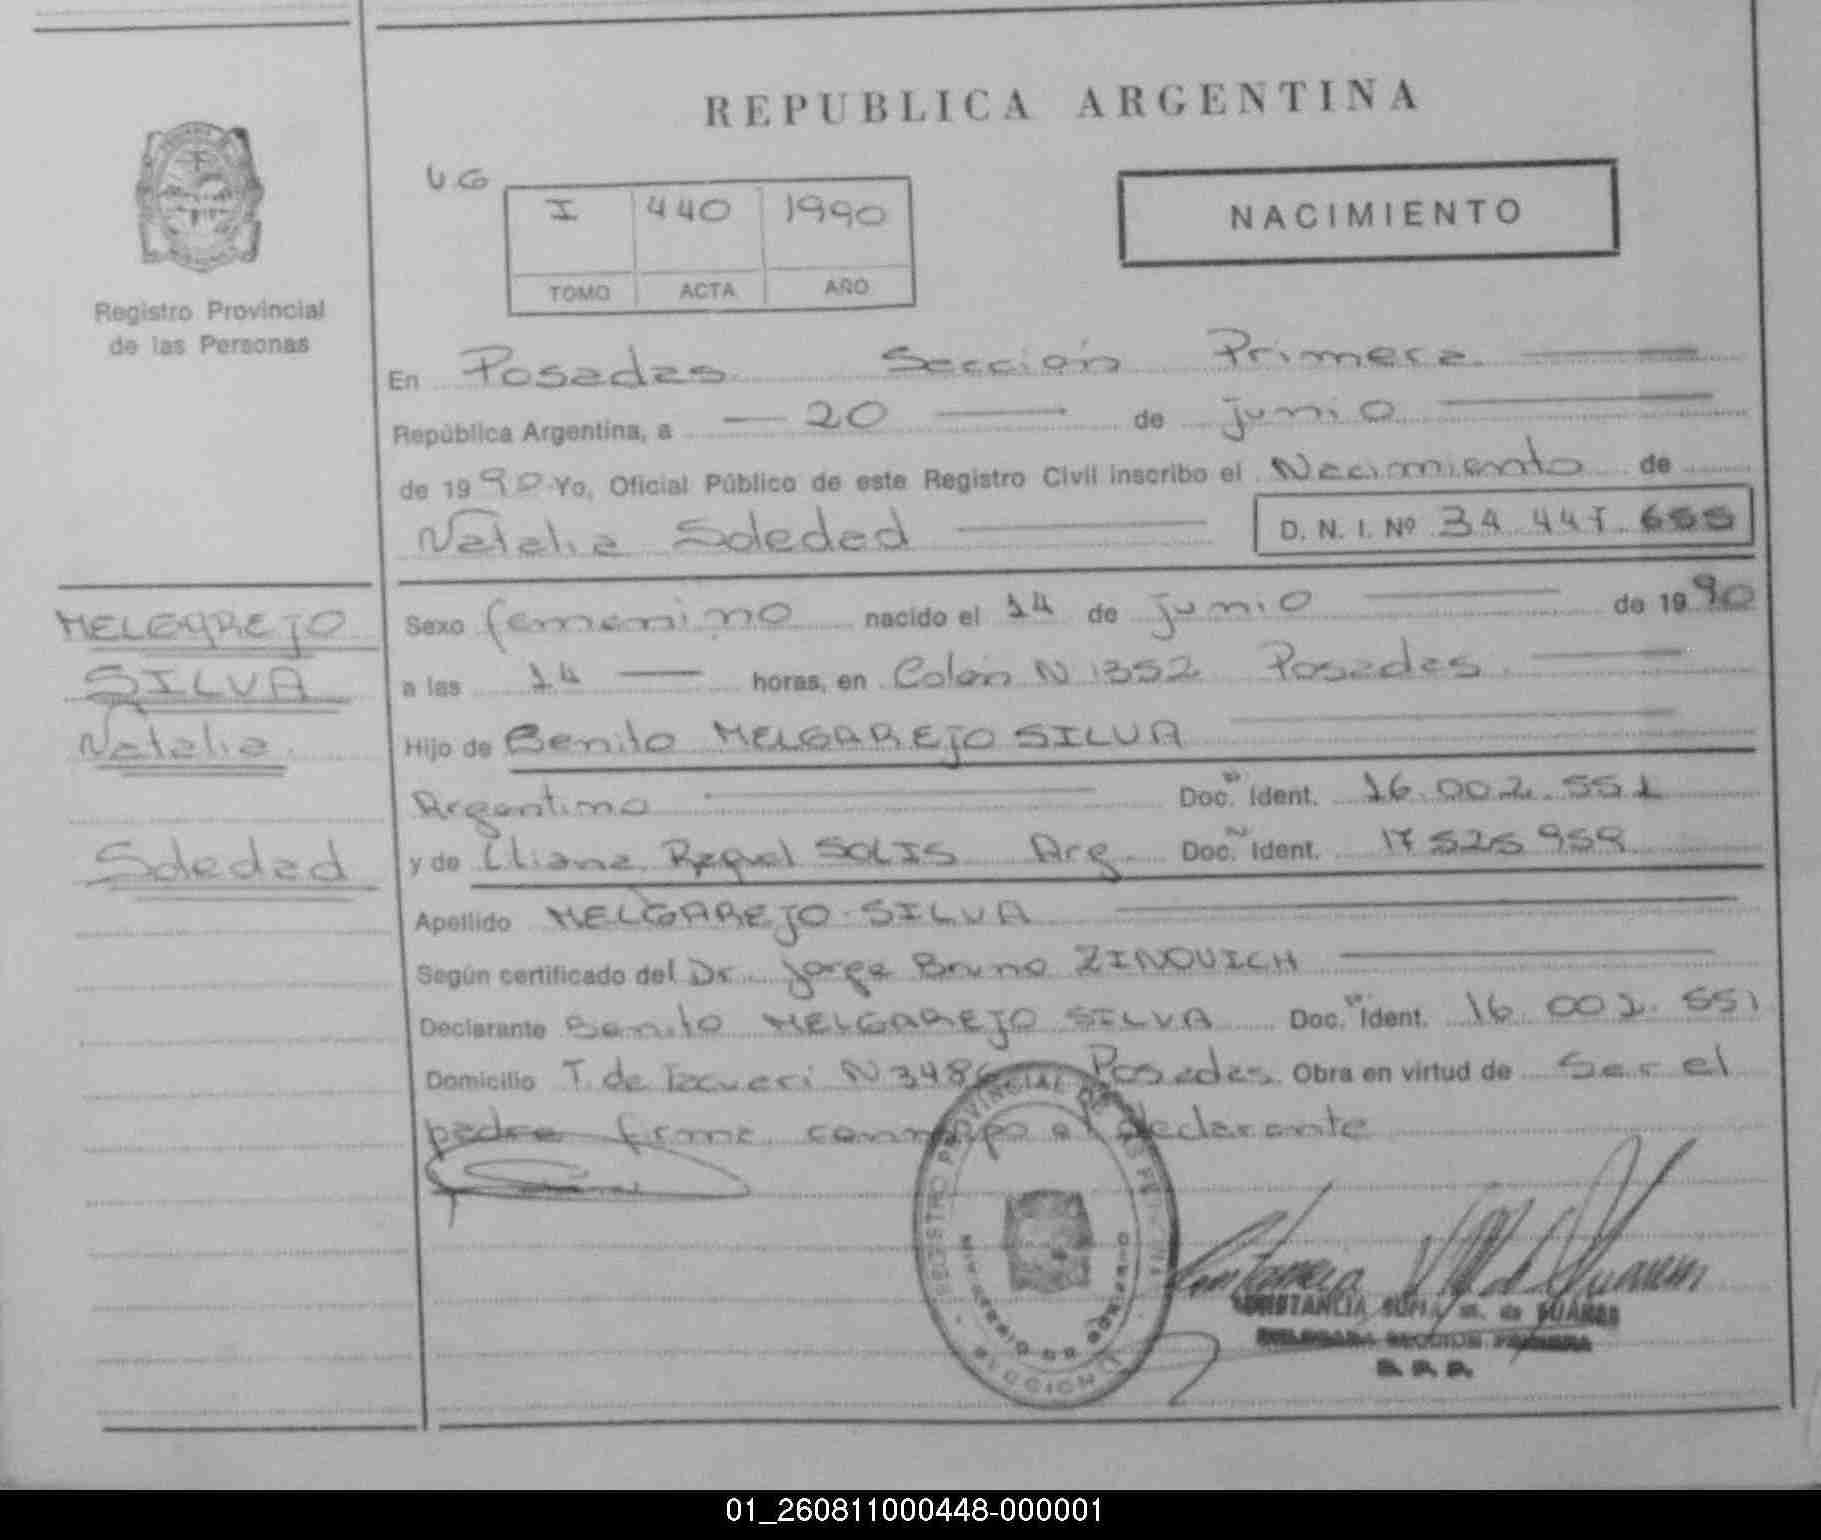 REPUBLICA ARGENTINA
UG
I 440 1990
TOMO ACTA AÑO
NACIMIENTO
Registro Provincial
de las Personas
En Posadas Sección Primera
República Argentina, a 20 de junio
de 1990 Yo, Oficial Público de este Registro Civil inscribo el Nacimiento de
Natalia Soledad D. N. I. Nº 34 447 655
MELEGAREJO
SILVA
Natalia
Soledad
Sexo femenino nacido el 14 de junio de 1990
a las 14 horas, en Colón N 1352 Posadas
Hijo de Benito MELGAREJO SILVA
Argentino Doc. Ident. 16.002.551
y de Liliana Raquel SOLIS Arg. Doc. Ident. 17 525 959
Apellido MELGAREJO SILVA
Según certificado del Dr. Jorge Bruno ZINOVICH
Declarante Benito MELGAREJO SILVA Doc. Ident. 16.002.551
Domicilio T. de Tacuari N 3486 Posadas Obra en virtud de Ser el
padre firma conmigo el declarante
REGISTRO PROVINCIAL DE LAS PERSONAS
MINISTERIO DE GOBIERNO
SECCION 1
CONSTANCIA SOFIA M. de SUAREZ
DELEGADA SECCION PRIMERA
R. P. P.
01_260811000448-000001